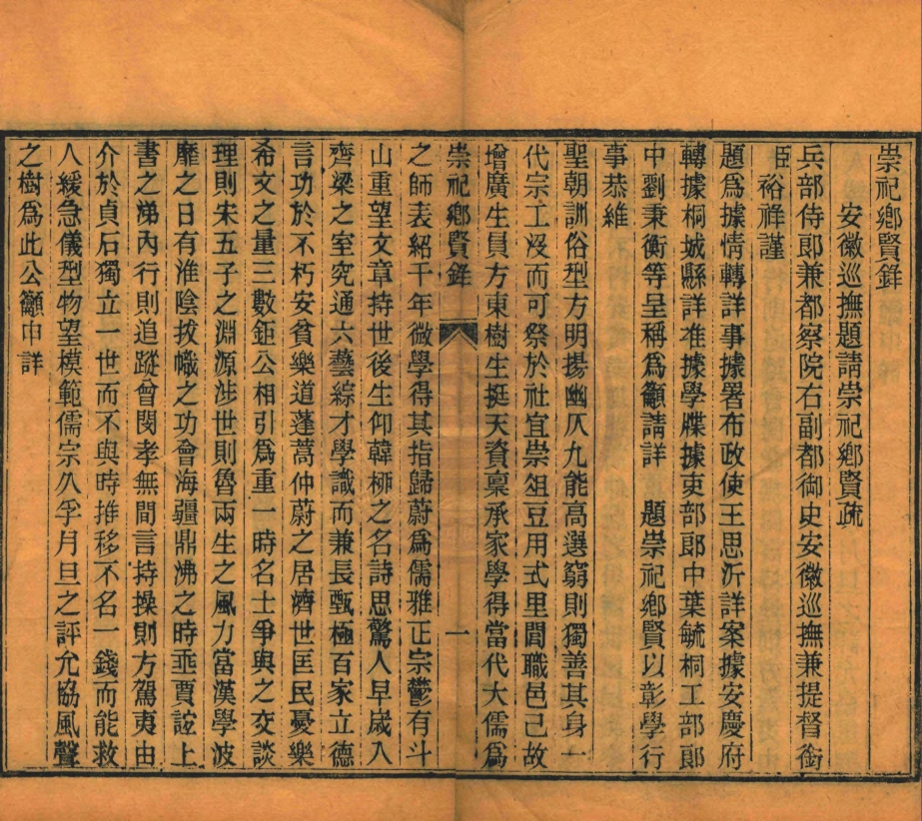 崇祀鄉賢錄
安徽巡撫題請崇祀鄉賢疏
兵部侍郎兼都察院右副都御史安徽巡撫兼提督銜
臣裕祥謹
題爲據情轉詳事據署布政使王思沂詳案據安慶府
轉據桐城縣詳准據學牒據吏部郎中葉毓桐工部郎
中劉秉衡等呈稱爲籲請詳 題崇祀鄉賢以彰學行
事恭維
聖朝訓俗型方明揚幽仄九能高選窮則獨善其身一
代宗工沒而可祭於社宜崇俎豆用式里閭職邑己故
增廣生員方東樹生挺天資稟承家學得當代大儒爲
崇祀鄉賢錄 一
之師表紹千年微學得其指歸蔚爲儒雅正宗鬱有斗
山重望文章持世後生仰韓柳之名詩思驚人早歲入
齊梁之室究通六藝綜才學識而兼長甄極百家立德
言功於不朽安貧樂道蓬蒿仲蔚之居濟世匡民憂樂
希文之量三數鉅公相引爲重一時名士爭與之交談
理則宋五子之淵源涉世則魯兩生之風力當漢學波
靡之日有淮陰拔幟之功會海疆鼎沸之時亟賈誼上
書之涕內行則追蹤曾閔孝無間言持操則方駕夷由
介於貞石獨立一世而不與時推移不名一錢而能救
人緩急儀型物望模範儒宗久孚月旦之評允協風聲
之樹爲此公籲申詳